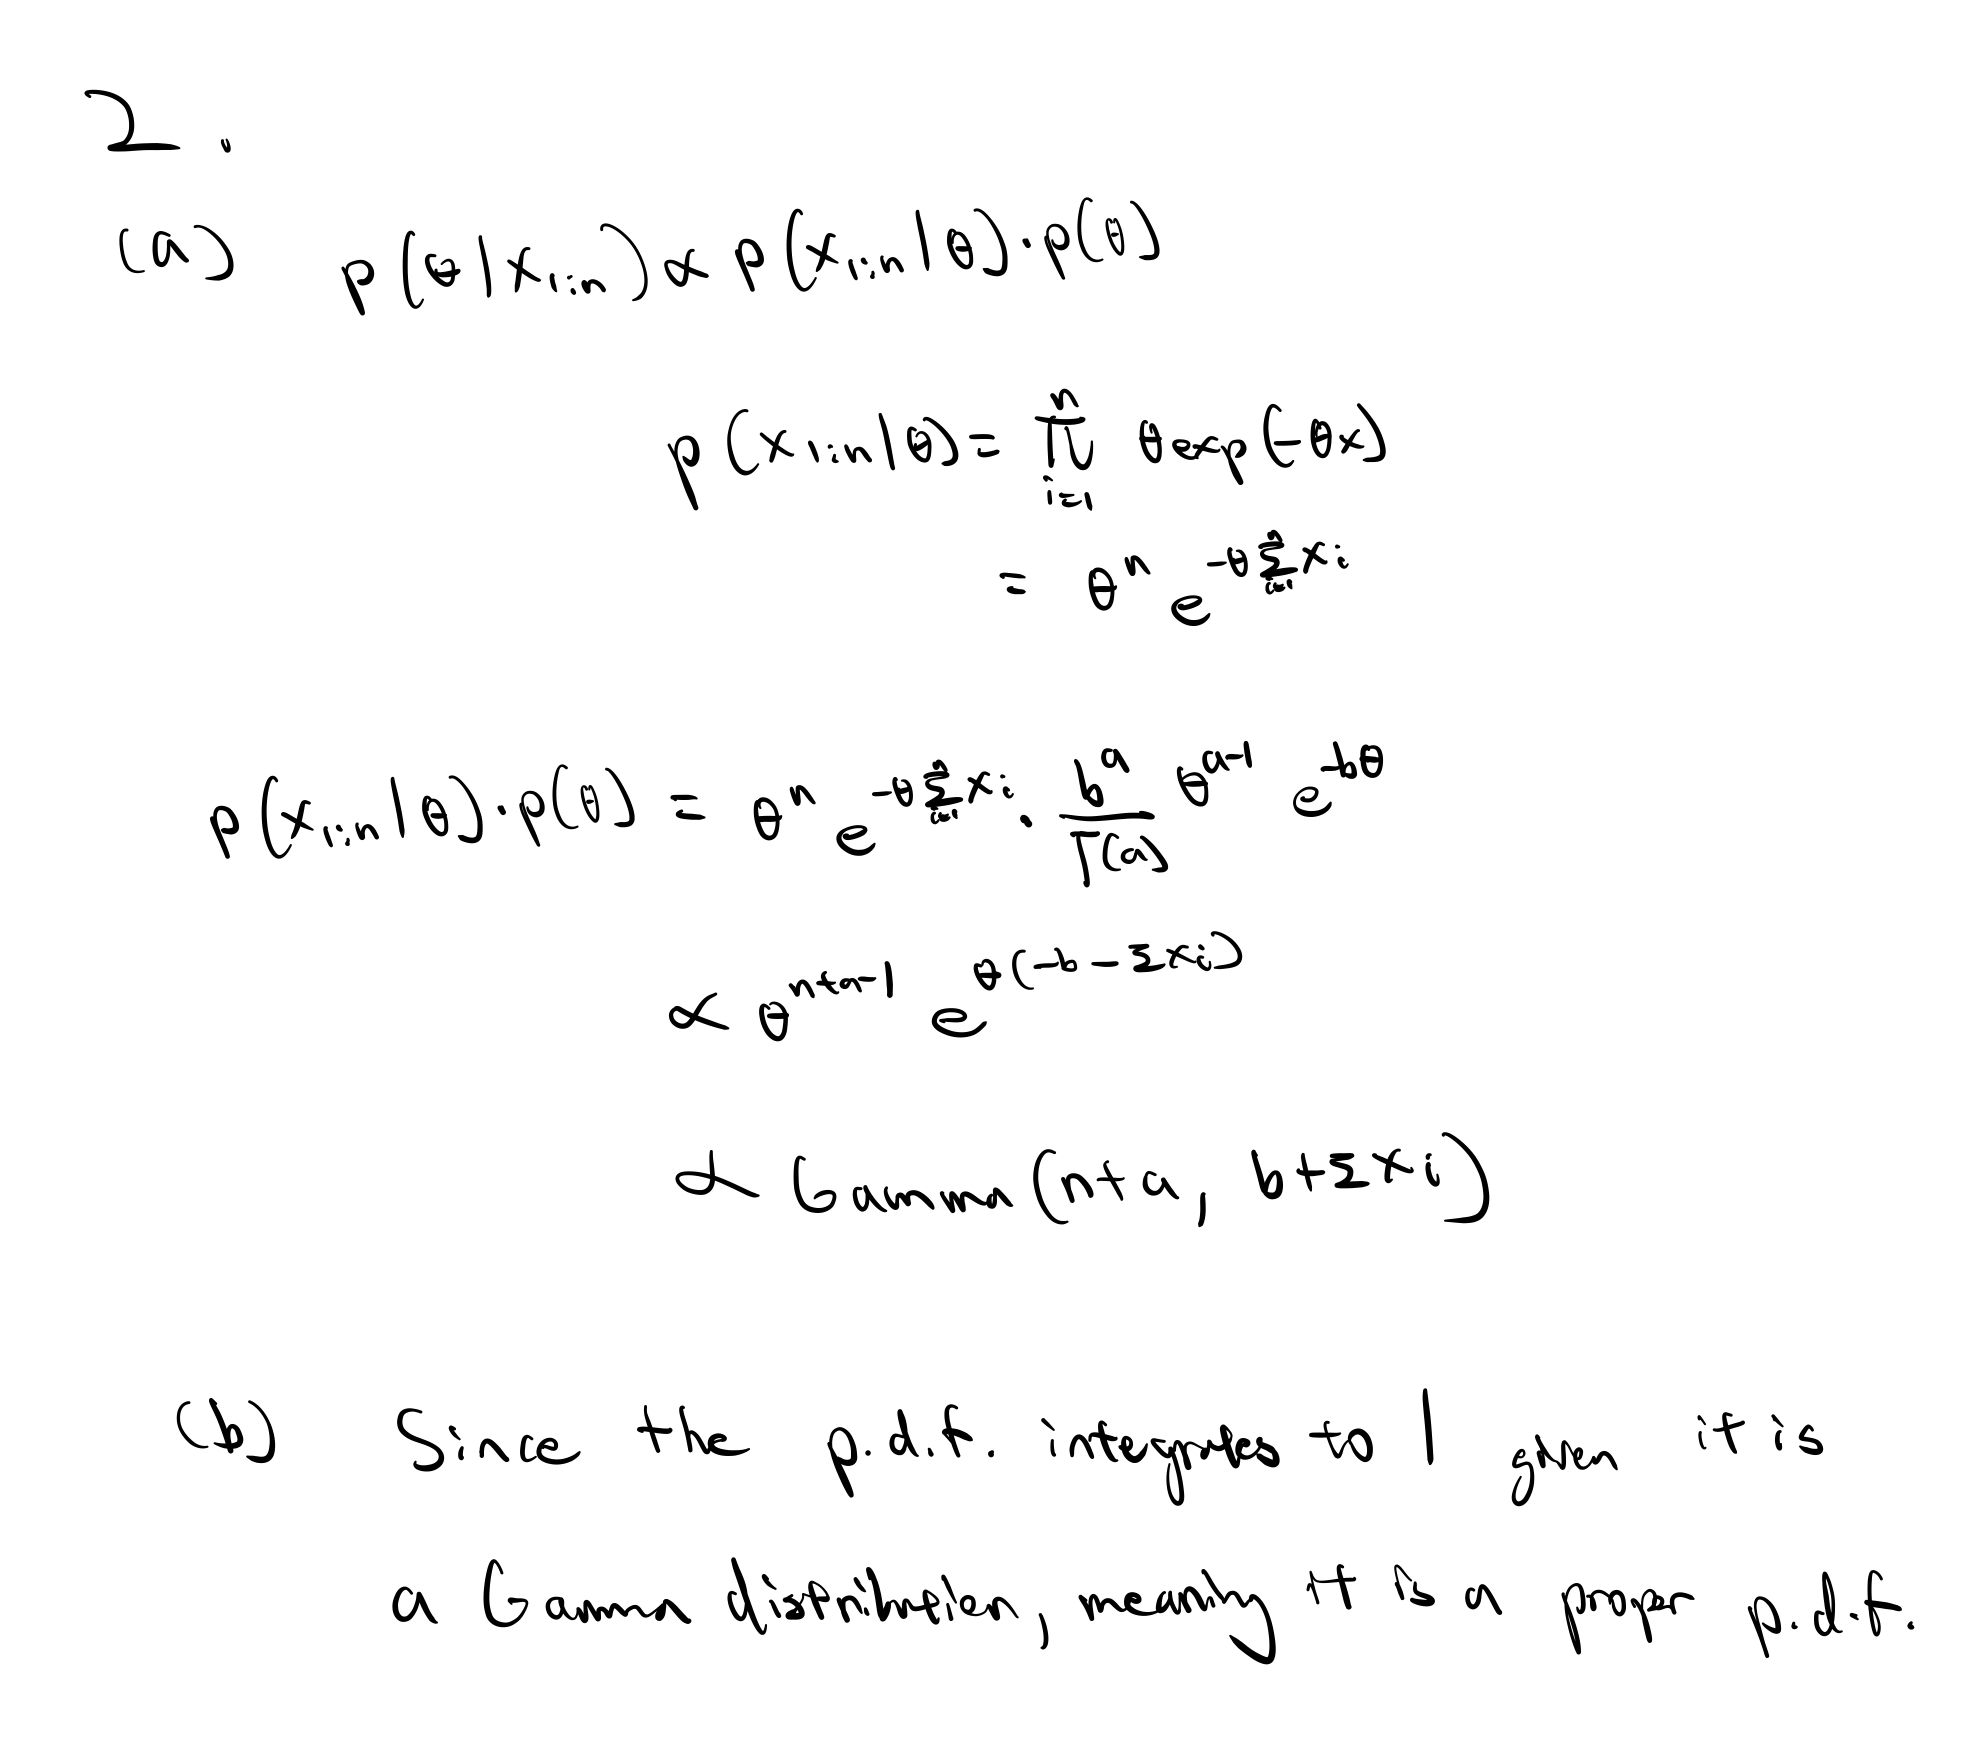 2.
(a) p(θ|x₁:ₙ) ∝ p(x₁:ₙ|θ)·p(θ)
p(x₁:ₙ|θ) = ∏ᵢ₌₁ⁿ θexp(-θx)
= θⁿ e^(-θ Σᵢ₌₁ⁿ xᵢ)
p(x₁:ₙ|θ)·p(θ) = θⁿ e^(-θ Σᵢ₌₁ⁿ xᵢ) · b^a/Γ(a) θ^(a-1) e^(-bθ)
∝ θ^(n+a-1) e^(θ(-b-Σxᵢ))
∝ Gamma(n+a, b+Σxᵢ)
(b) Since the p.d.f. integrates to 1 given it is
a Gamma distribution, meaning it is a proper p.d.f.